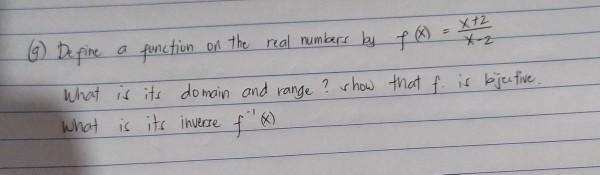 (g) Define a function on the real numbers by f(x) = x+2/x-2
What is its domain and range? show that f. is bijective.
What is its inverse f⁻¹(x)